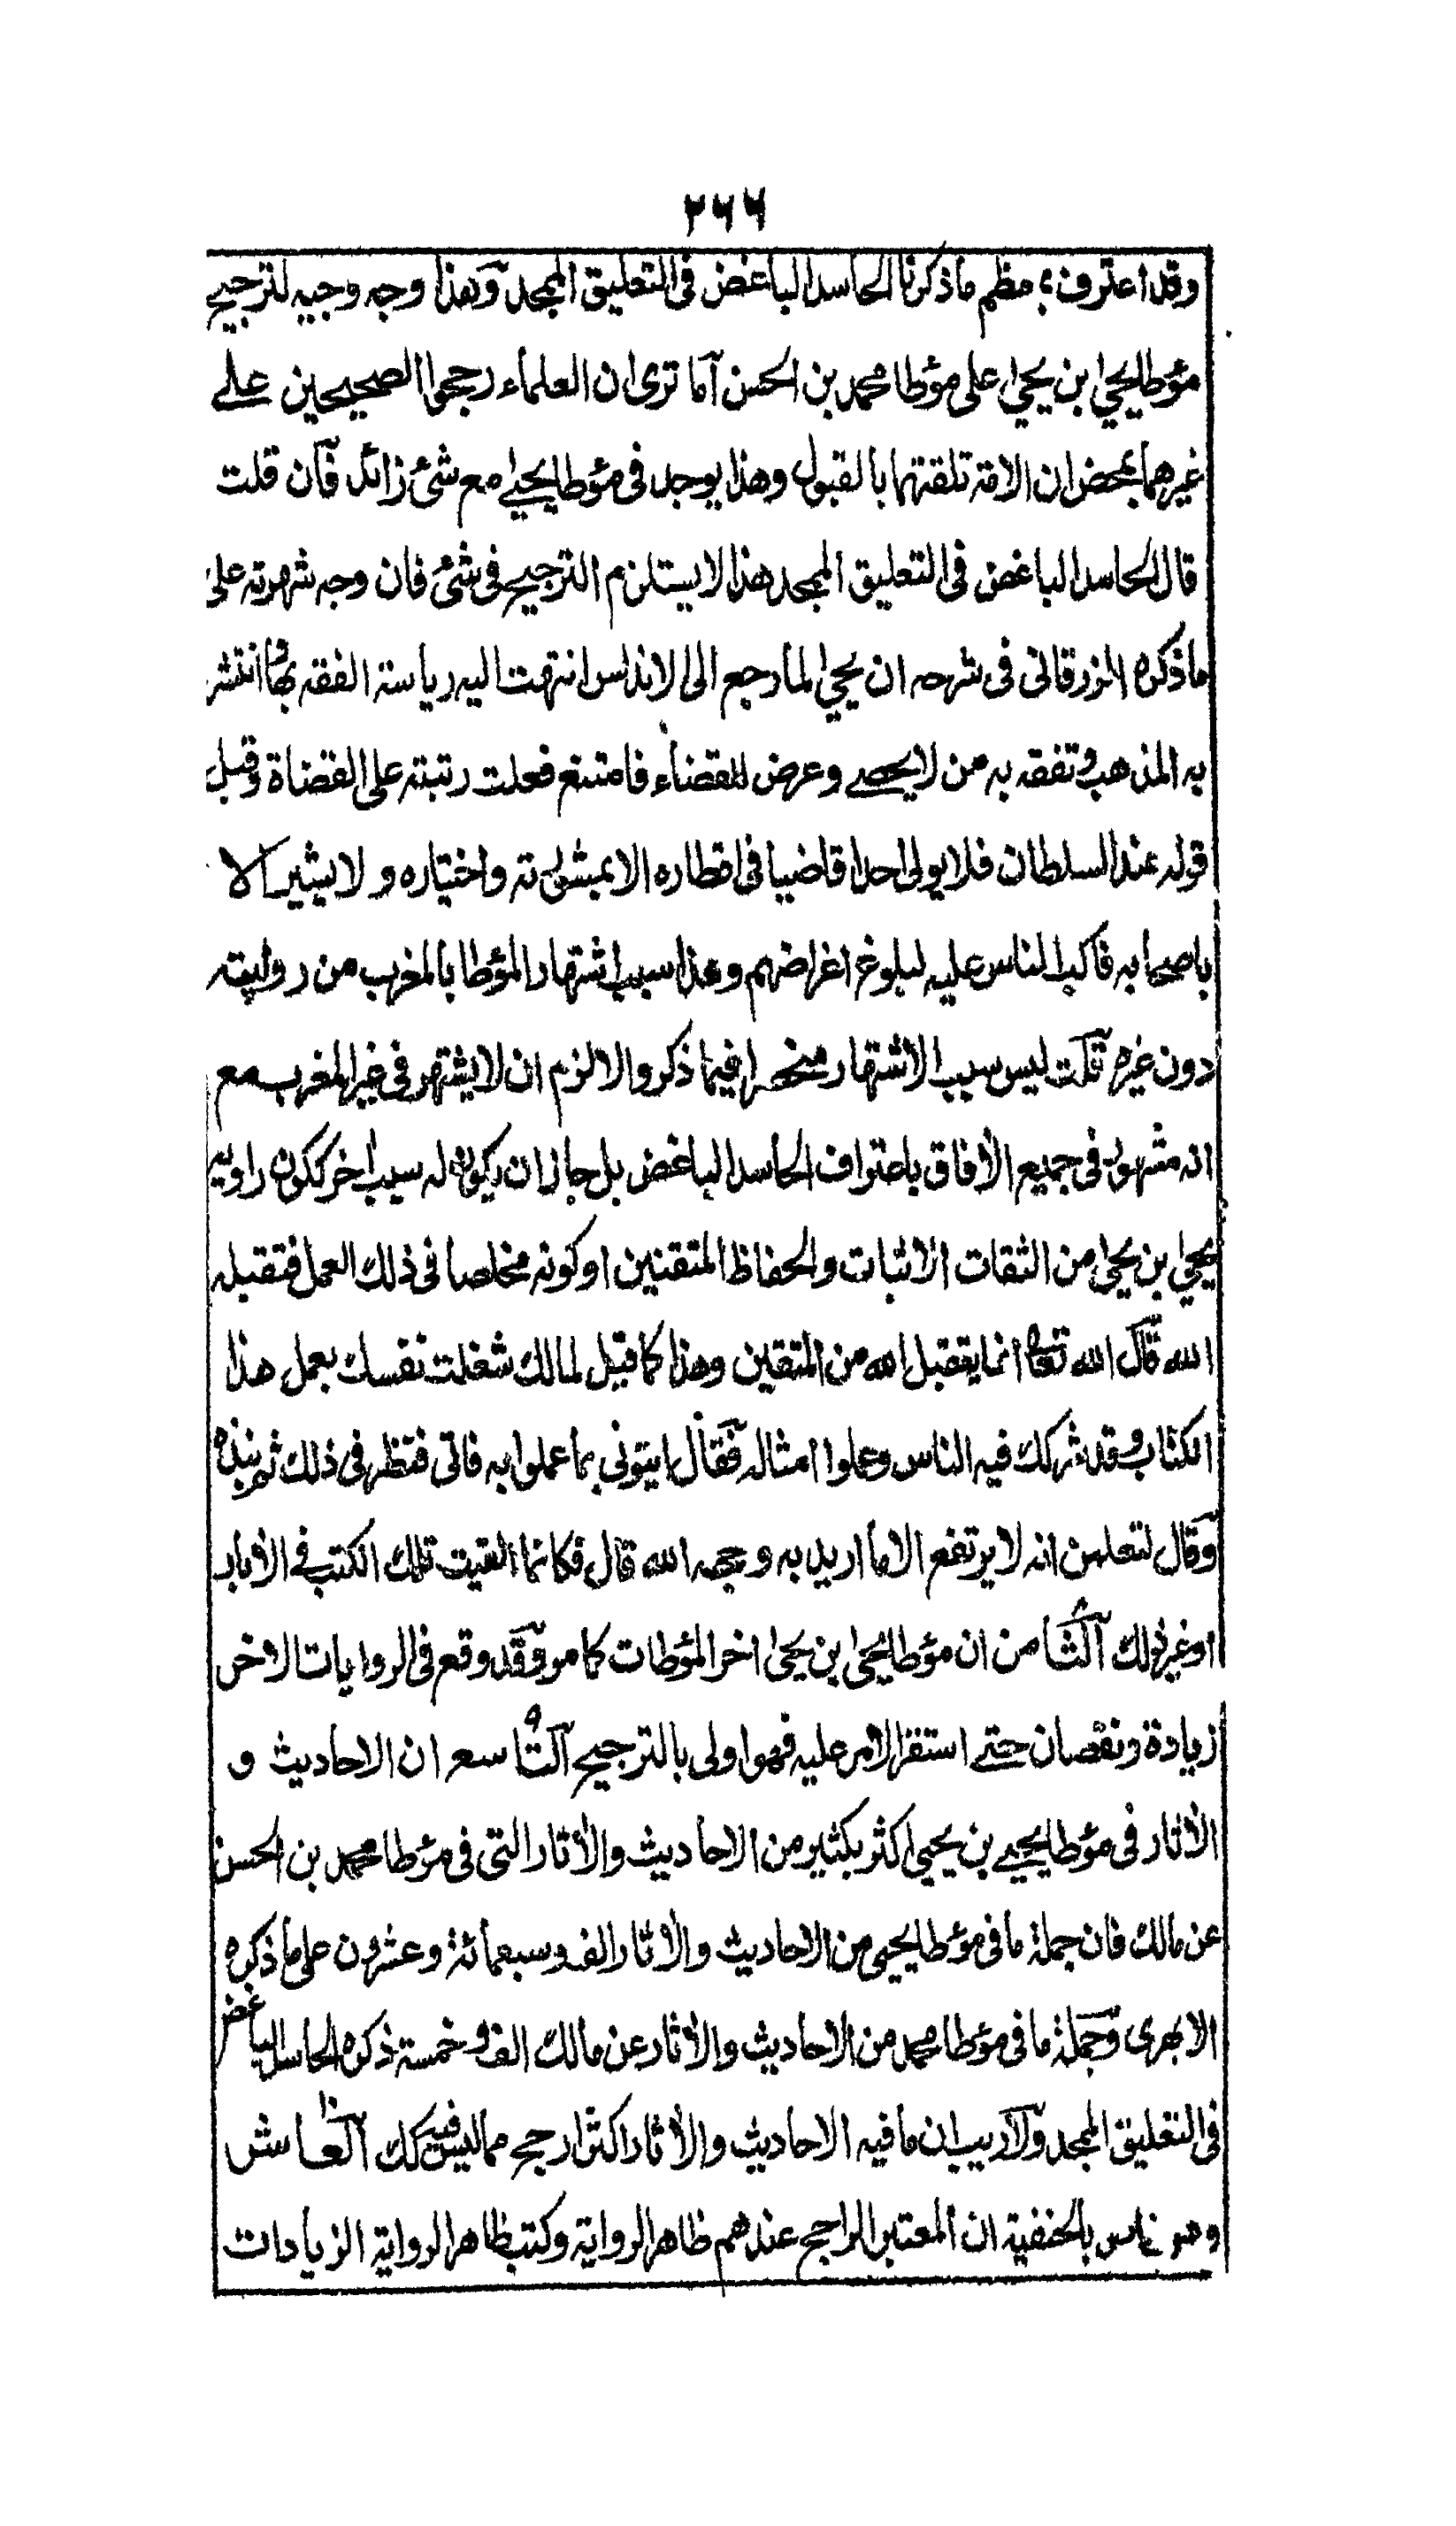 ٢٦٦
وقد اعترف بمعظم ما ذكرنا الحاسد الباغض فى التعليق الممجد وهذا وجه وجيه لترجيح
مؤطا يحيى ابن يحيى على مؤطا محمد بن الحسن اما ترى ان العلماء رجحوا الصحيحين على
غيرهما بمحض ان الامة تلقتهما بالقبول وهذا يوجد فى مؤطا يحيى مع شئ زائد فان قلت
قال الحاسد الباغض فى التعليق الممجد هذا لا يستلزم الترجيح فى شئ فان وجه شهرته على
ما ذكره الزرقانى فى شرحه ان يحيى لما رجع الى الاندلس انتهت اليه رياسة الفقه بها وانتشر
به المذهب وتفقه به من لا يحصى وعرض للقضاء فامتنع فعلت رتبته على القضاة وقبل
قوله عند السلطان فلا يولى احدا قاضيا فى اقطاره الا بمشورته واختياره ولا يشير الا
باصحابه فاكب الناس عليه لبلوغ اغراضهم وهذا سبب اشتهار المؤطا بالمغرب من روايته
دون غيره قلت ليس سبب الاشتهار منحصرا فيما ذكر والا لزم ان لا يشتهر فى غير المغرب مع
انه مشهور فى جميع الافاق باعتراف الحاسد الباغض بل جاز ان يكون له سبب اخر ككون راويه
يحيى بن يحيى من الثقات الاثبات والحفاظ المتقنين او كونه مخلصا فى ذلك العمل فتقبله
الله قال الله تعالى انما يتقبل الله من المتقين وهذا كما قيل لمالك شغلت نفسك بعمل هذا
الكتاب وقد شركك فيه الناس وعملوا امثاله فقال ايتونى بما عملوا به فاتى فنظر فى ذلك ثم نبذه
وقال لتعلمن انه لا يرتفع الا ما اريد به وجه الله قال فكانما القيت تلك الكتب فى الابار
او غير ذلك الثامن ان مؤطا يحيى بن يحيى اخر المؤطات كما مر وقد وقع فى الروايات الاخر
زيادة ونقصان حتى استقر الامر عليه فهو اولى بالترجيح التاسع ان الاحاديث و
الاثار فى مؤطا يحيى بن يحيى اكثر بكثير من الاحاديث والاثار التى فى مؤطا محمد بن الحسن
عن مالك فان جملة ما فى مؤطا يحيى من الاحاديث والاثار الف وسبعمائة وعشرون على ما ذكره
الابهرى وجملة ما فى مؤطا محمد من الاحاديث والاثار عن مالك الف وخمسة ذكره الحاسد الباغض
فى التعليق الممجد ولا ريب ان ما فيه الاحاديث والاثار اكثر ارجح مما ليس فيه كك العاشر
وهو خاص بالحنفية ان المعتبر الراجح عندهم ظاهر الرواية وكتب ظاهر الرواية الزيادات